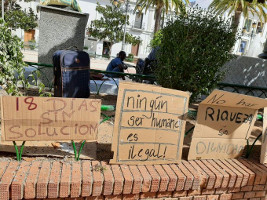 18 DIAS
SIN
SOLUCION
ningún
ser humano
es
ilegal!
No hay
RIQUEZA